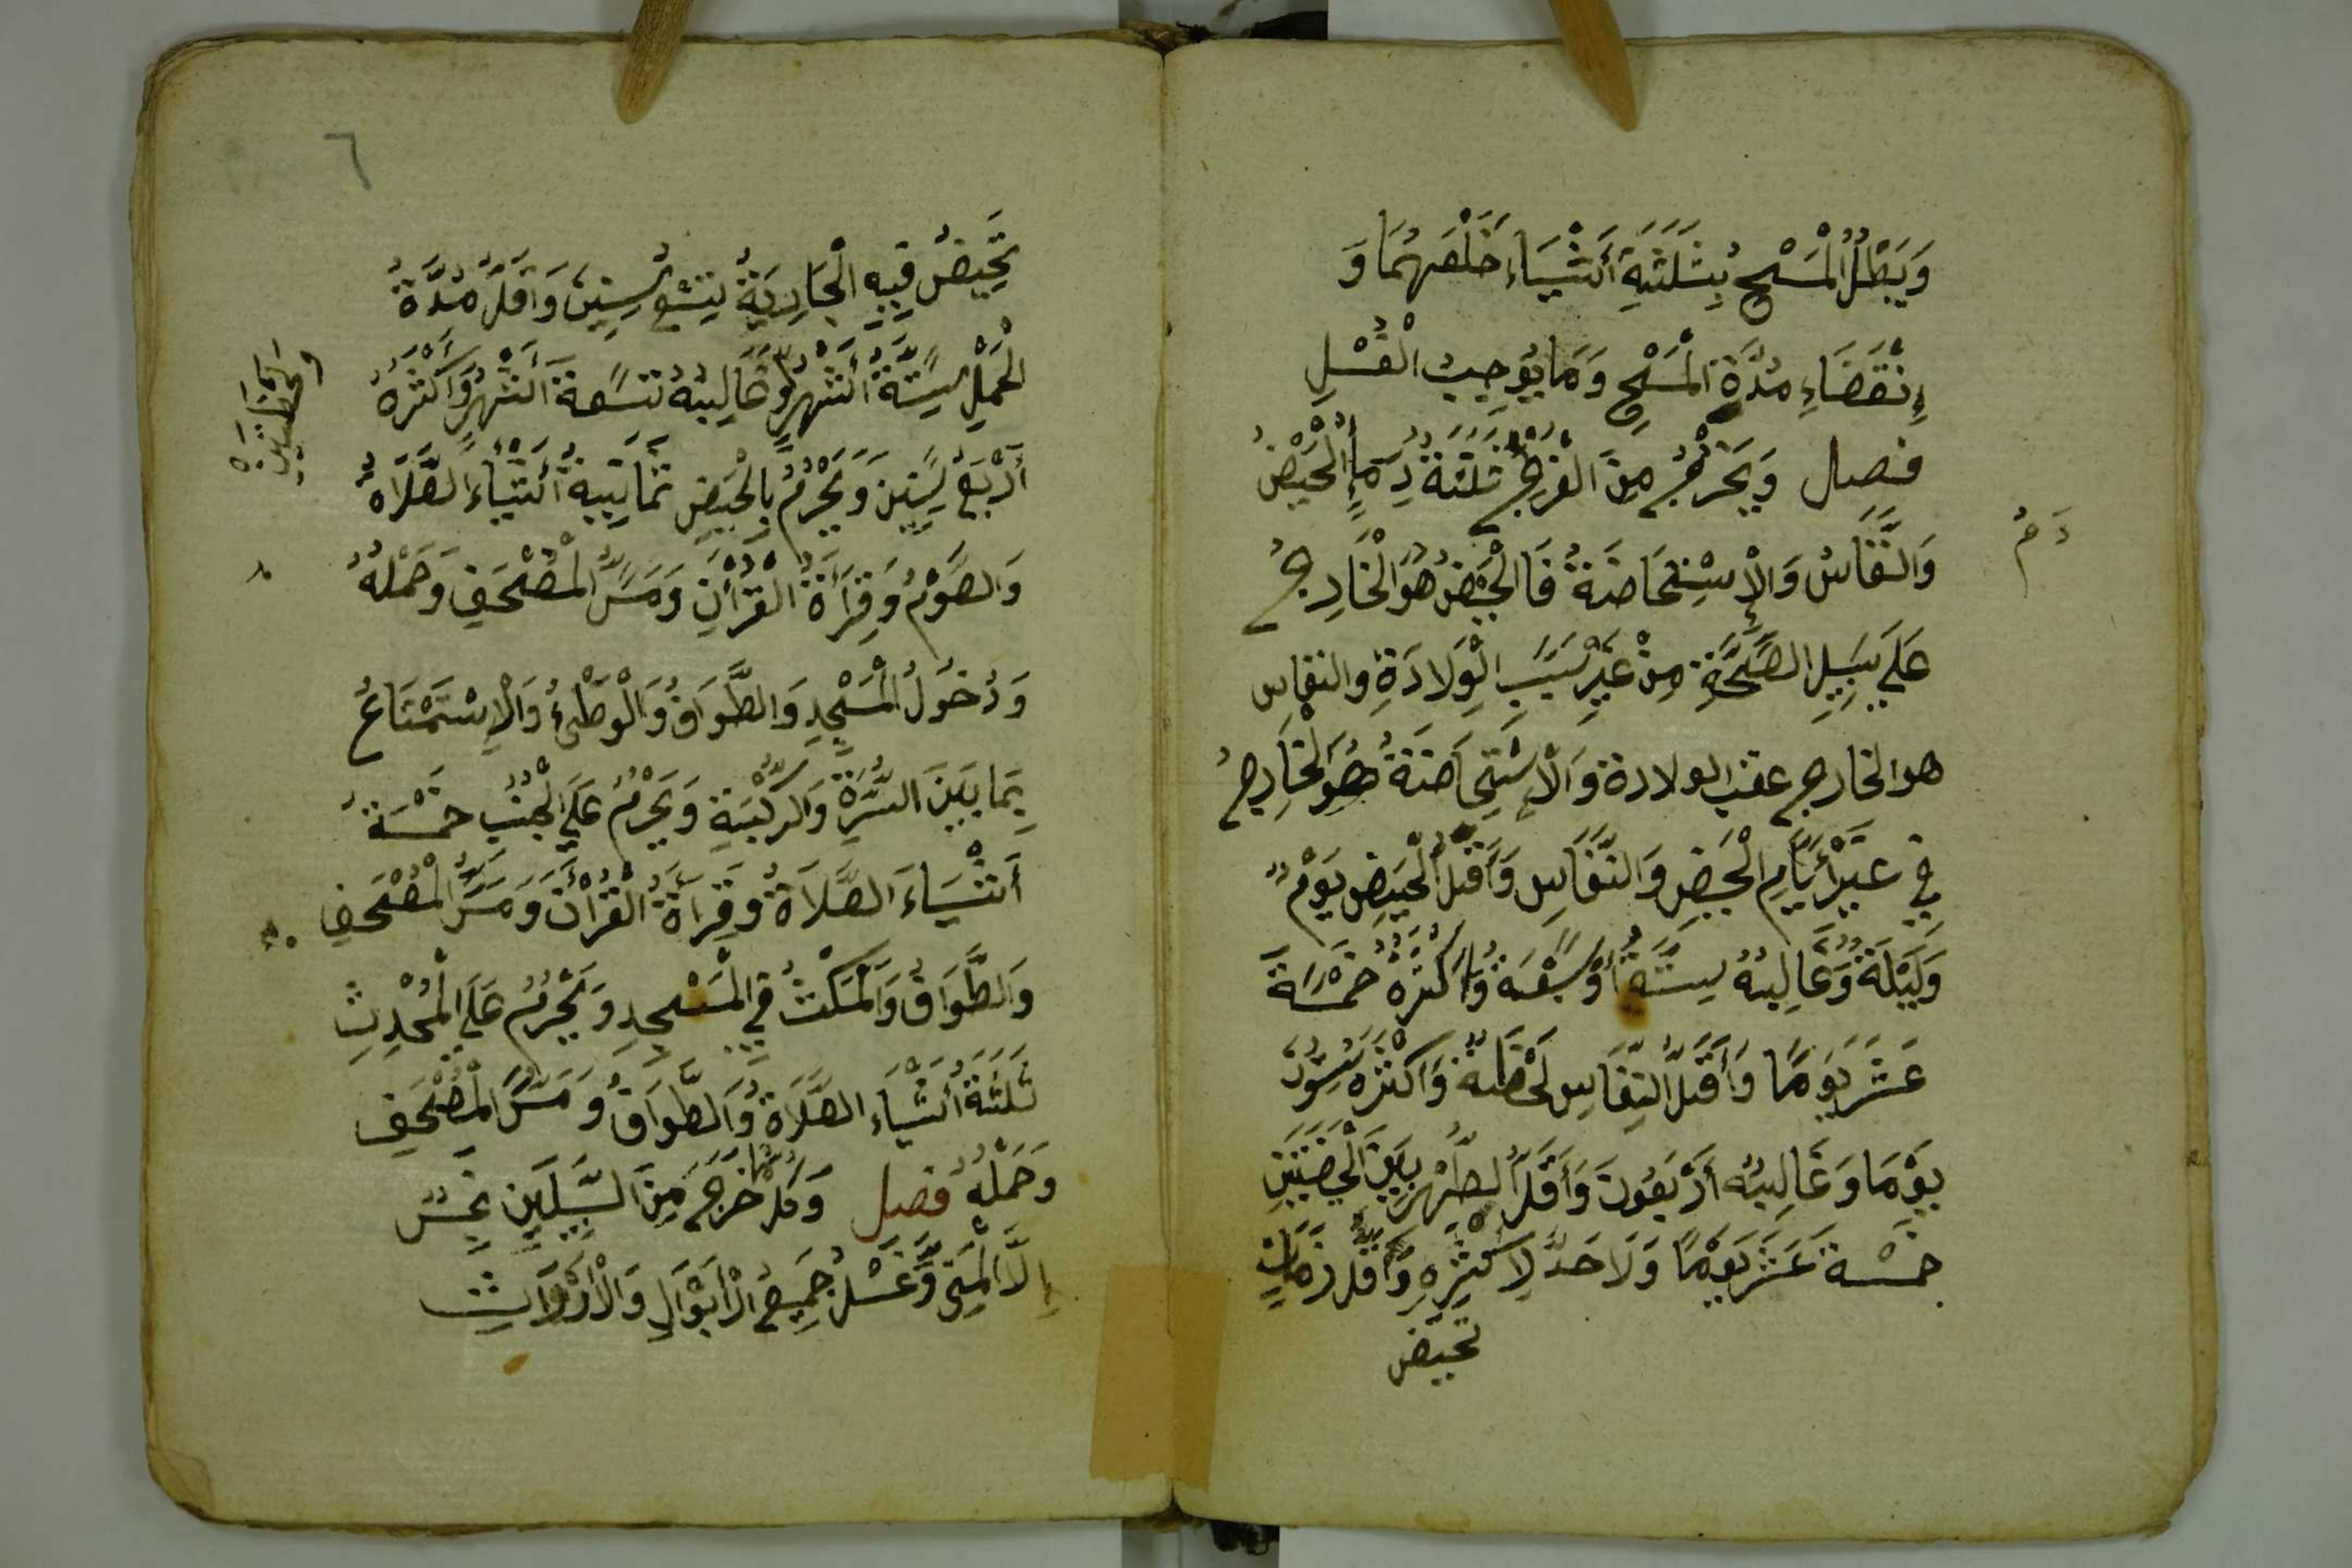 وَيَبْطُلُ الْمَسْحُ بِثَلَثَةِ أَشْيَاءَ خَلْعِهُمَا وَ
إِنْقَضَاءِ مُدَّةِ الْمَسْحِ وَمَا يُوجِبُ الْغُسْلِ
فصل وَيَخْرُجُ مِنَ الْفَرْجِ ثَلَثَةُ دِمَاءٍ الْحَيْضُ
دَمُ
وَالنِّفَاسُ وَالْإِسْتِحَاضَةُ فَالْحَيْضُ هُوَ الْخَارِجُ
عَلَي سَبِيلِ الصِّحَّةِ مِنْ غَيْرِ سَبَبِ الْوِلَادَةِ والنفاس
هو الخارج عقب الولادة وَالْإسْتِحَاضَةُ هُوَ الْخَارِجُ
فِي غَيْرِ أَيَّامِ الْحَيْضِ وَالنِّفَاسِ وَأَقَلُّ الْحَيْضِ يَوْمٌ
وَلَيْلَةٌ وَغَالِبُهُ سِتَّةٌ أَوْ سَبْعَةٌ وَأَكْثَرُهُ خَمْسَةَ
عَشَرَ يَوْمًا وَأَقَلُّ النِّفَاسِ لَحْظَةٌ وَأَكْثَرُهُ سِتُّونَ
يَوْمًا وَغَالِبُهُ أَرْبَعُونَ وَأَقَلُّ الطُّهْرِ بَيْنَ الْحَيْضَتَيْنِ
خَمْسَةَ عَشَرَ يَوْمًا وَلَا حَدَّ لِأَكْثَرِهِ وَأَقَلُّ زَمَانٍ
تحيض
٦
تَحِيضُ فِيهِ الْجَارِيَةُ تِسْعُ سِنِينَ وَأَقَلُّ مُدَّةِ
الْحَمْلِ سِتَّةُ أَشْهُرٍ وَغَالِبُهُ تِسْعَةُ أَشْهُرٍ وَأَكْثَرُهُ
أَرْبَعُ سِنِينَ وَيَحْرُمُ بِالْحَيْضِ ثَمَانِيَةُ أَشْيَاءَ الصَّلَاةُ
وَالصَّوْمُ وَقِرَأَةُ الْقُرْأَنِ وَمَسُّ الْمُصْحَفِ وَحَمْلُهُ
وَدُخُولُ الْمَسْجِدِ وَالطَّوَافُ وَالْوَطْئُ وَالْإِسْتَمْتَاعُ
بِمَا بَيْنَ السُّرَّةِ وَالرُّكْبَةِ وَيَحْرُمُ عَلَي الْجُنُبِ خَمْسَةُ
أَشْيَاءَ الصَّلَاةُ وَقِرَأَةُ الْقُرْأَنِ وَمَسُّ الْمُصْحَفِ
وَالطَّوَافُ وَالْمَكْثُ فِي الْمَسْجِدِ وَيَحْرُمُ عَلَي الْمُحْدِثِ
ثَلَثَةُ أَشْيَاءَ الصَّلَاةُ وَالطَّوَافُ وَمَسُّ الْمُصْحَفِ
وَحَمْلُهُ فصل وَكُلُّ مَا خَرَجَ مِنَ السَّبِيلَيْنِ نَجِسٌ
إِلَّا الْمَنِيَّ وَغَسْلُ جَمِيعِ الْأَبْوَالِ وَالْأَرْوَاثِ